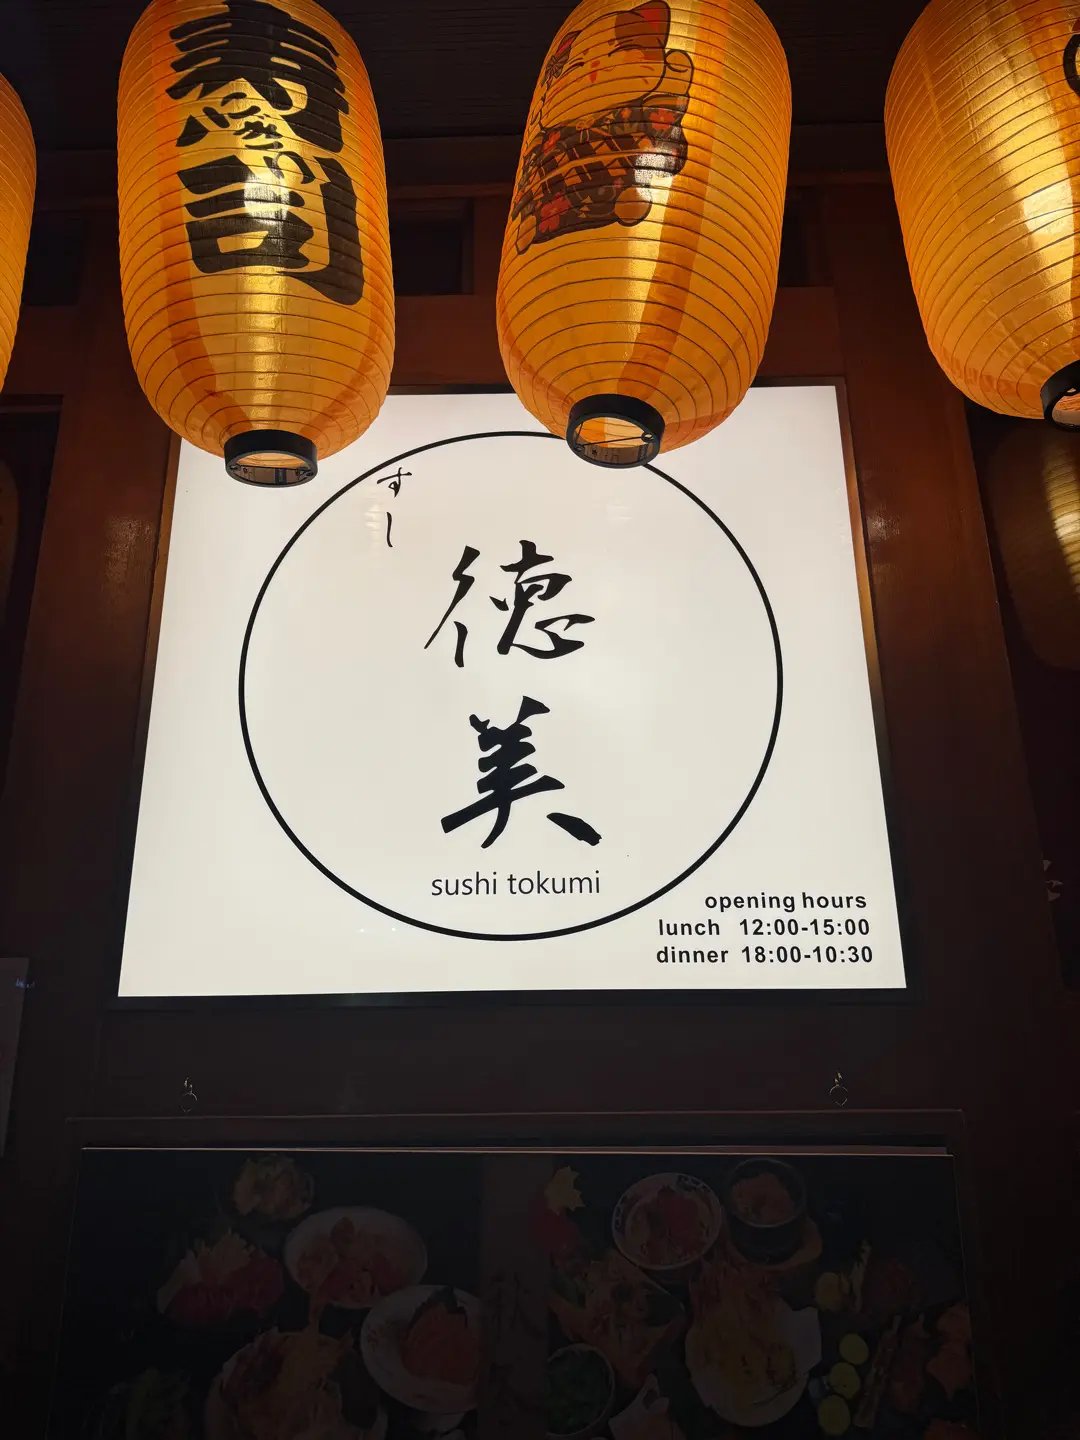 寿司
にぎり
すし
徳美
sushi tokumi
opening hours
lunch 12:00-15:00
dinner 18:00-10:30